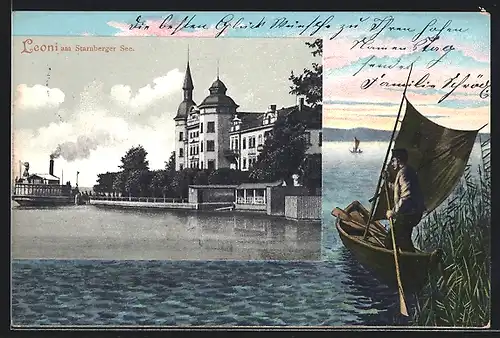 Leoni am Starnberger See.
Die besten Glück Wünsche zu Ihren hohen
Namen Tag
sendet
Familie Schröder